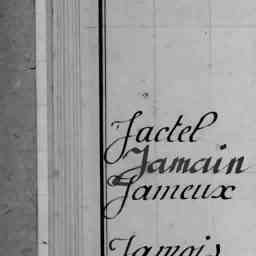 Jactel
Jamain
Jameux
Jamois